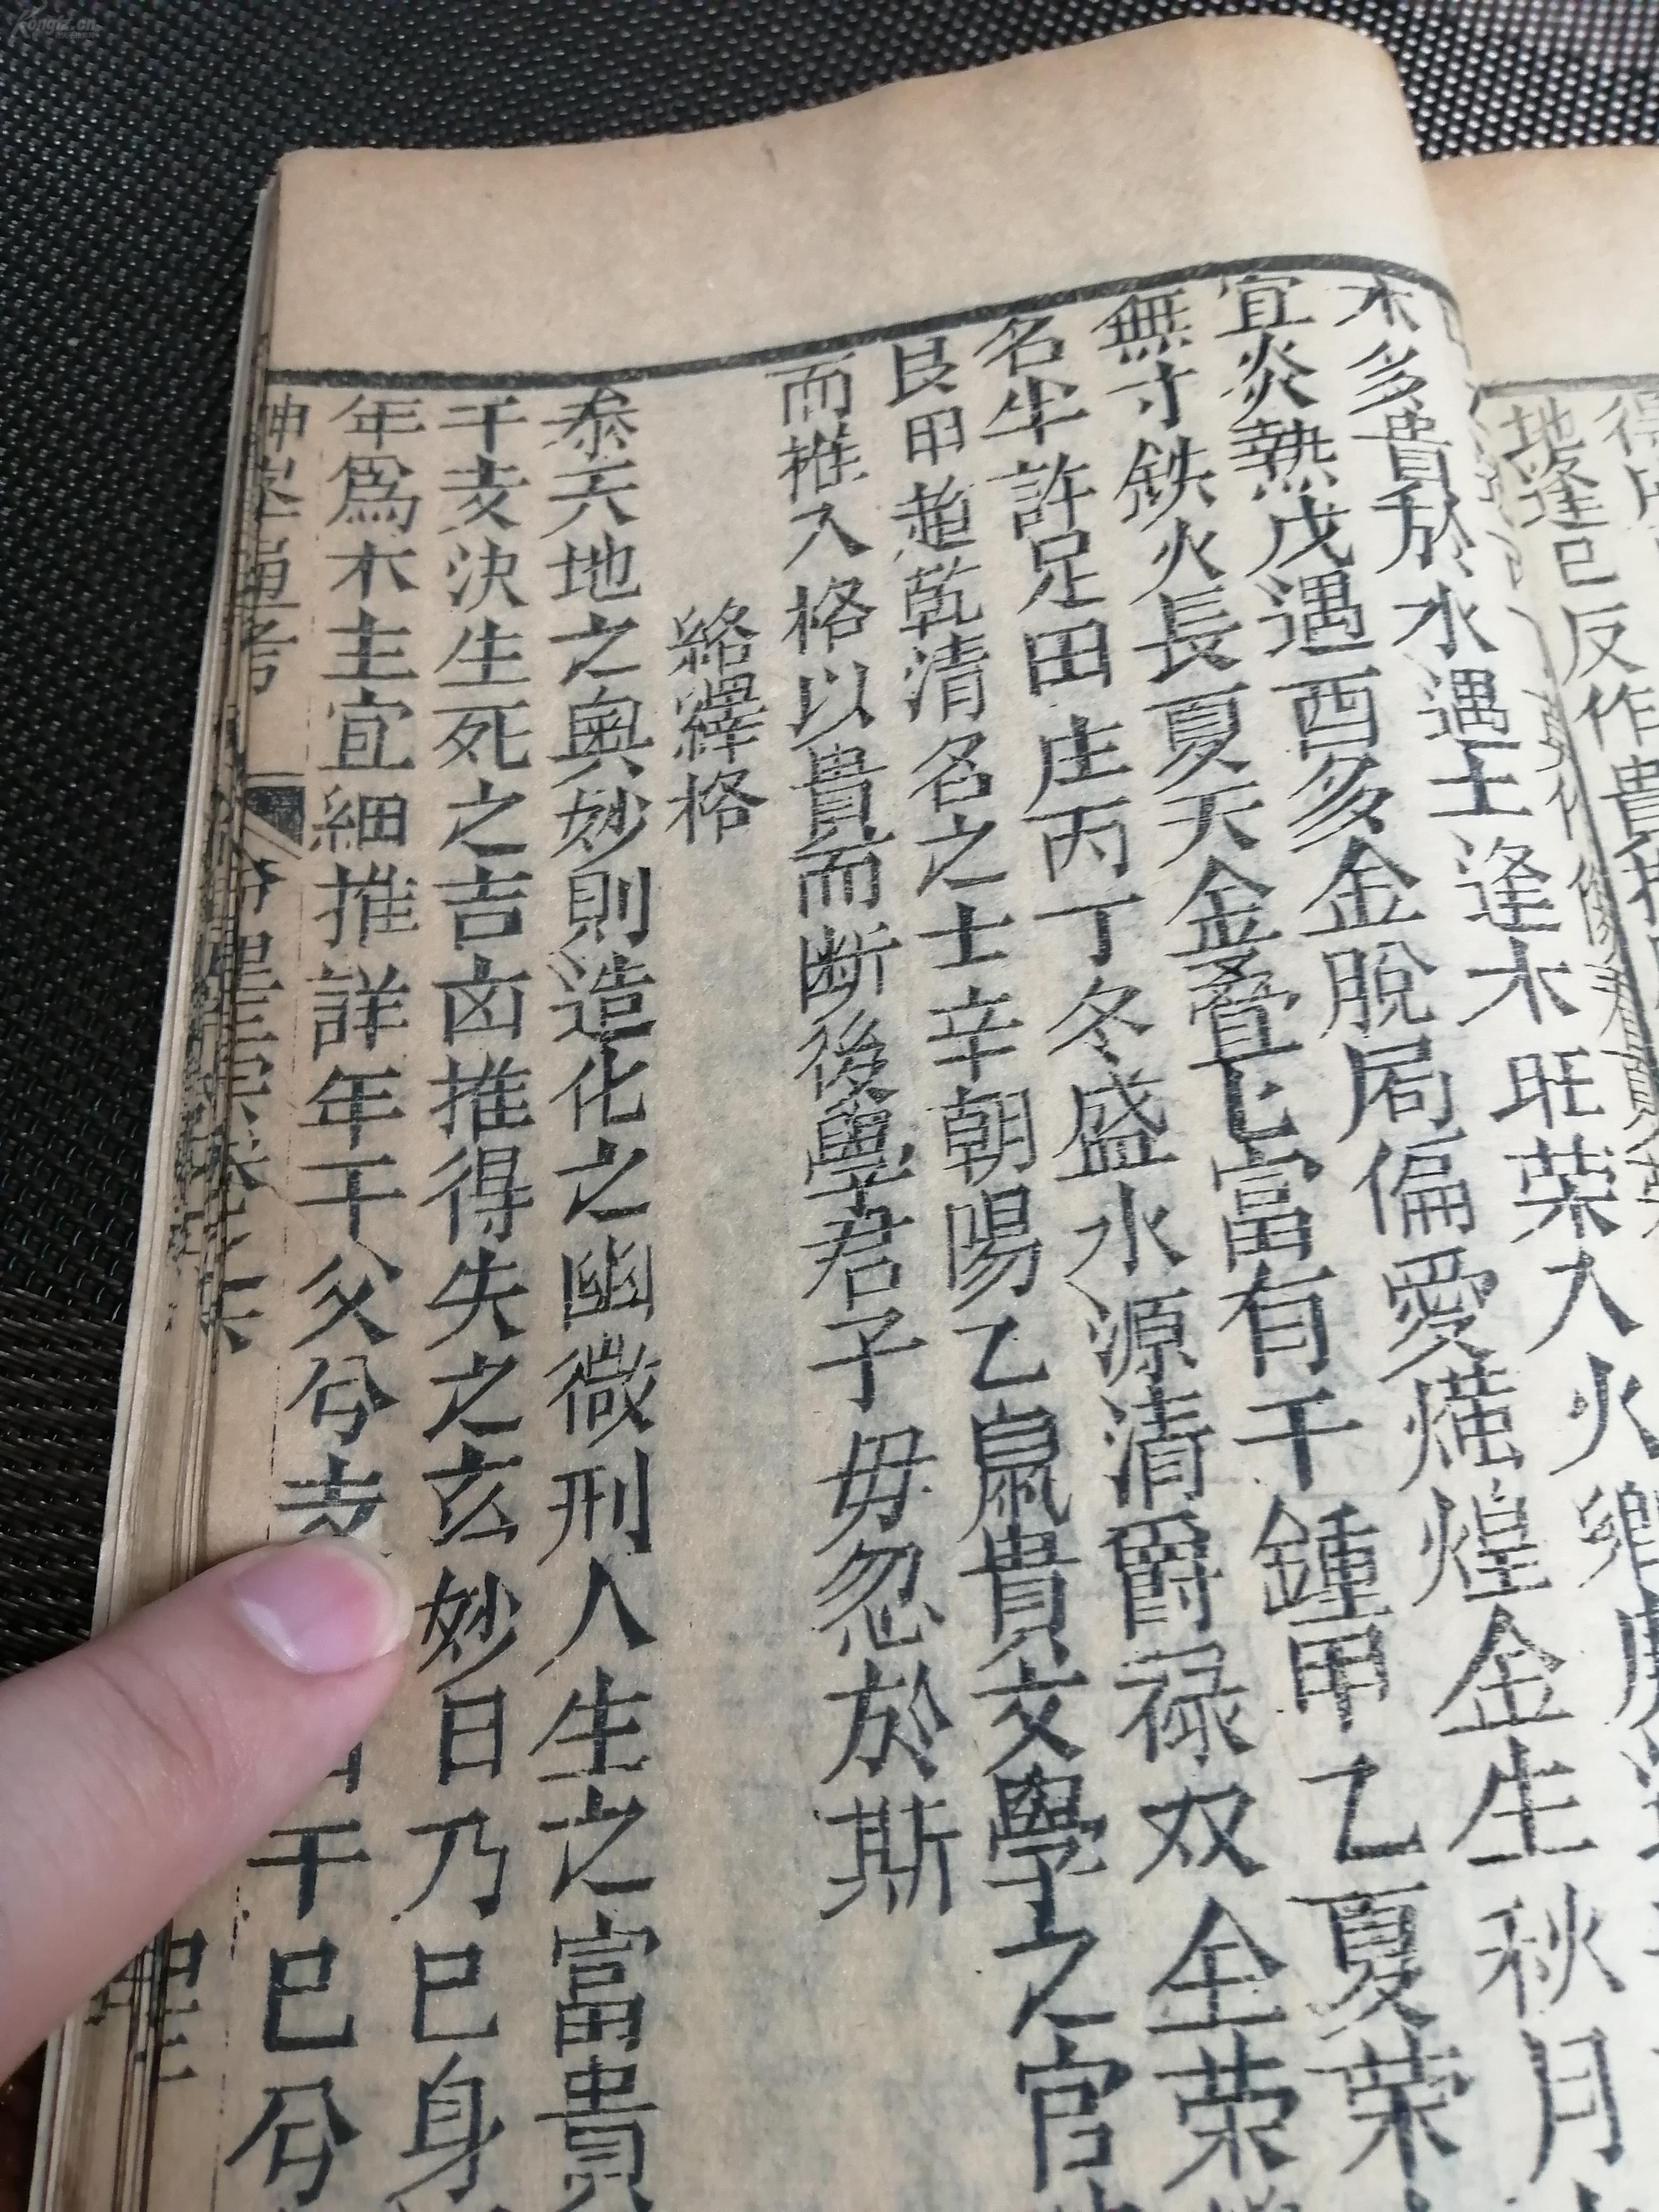 得
地逢巳反作貴
木多貴於水遇土逢木旺荣入火鄉
宜炎熱戊遇酉多金脫局偏愛熿煌金生秋月
無寸鉄火長夏天金叠叠富有千鍾甲乙夏荣
名坐許足田庄丙丁冬盛水源清爵禄双全荣
艮甲趍乾清名之士辛朝陽乙鼠貴文學之官
而推入格以貴而断後學君子毋忽於斯
絡繹格
泰天地之奥妙則造化之幽微刑人生之富貴
干支决生死之吉凶推得失之玄妙日乃巳身
年爲木主宜細推詳年干父兮支 干巳兮
Kongfz.cn